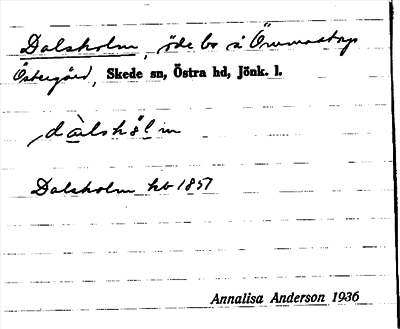 Dalsholm, öde bs å Ömmastorp
Östergård, Skede sn, Östra hd, Jönk. l.
dàlshòlm
Dalsholm hb 1857
Annalisa Anderson 1936